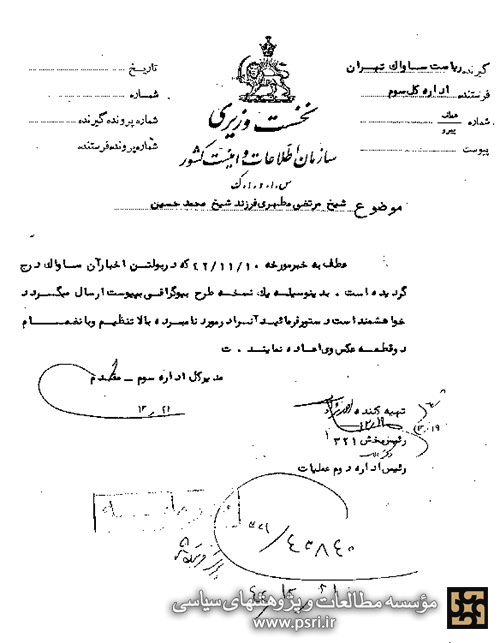 گیرنده ریاست ساواک تهران
فرستنده اداره کل سوم
شماره عطف پیرو
پیوست
تاریخ
شماره
شماره پرونده گیرنده
شماره پرونده فرستنده
نخست وزیری
سازمان اطلاعات و امنیت کشور
س.ا.و.ا.ک
موضوع شیخ مرتضی مطهری فرزند شیخ محمد حسین
عطف به خبر مورخه ۲۲/۱۱/۱۰ که در بولتن اخبار آن ساواک درج
گردیده است . بدینوسیله یک نسخه طرح بیوگرافی بپیوست ارسال میگردد
خواهشمند است دستور فرمائید آنرا در مورد نامبرده بالا تنظیم و بانضمام
دو قطعه عکس وی اعاده نمایند . ت
مدیرکل اداره سوم - مقدم
۱۲/۲۱
تهیه کننده
۱۲/۱۹
رئیس بخش ۳۲۱
رئیس اداره دوم عملیات
مؤسسه مطالعات و پژوهشهای سیاسی
www.psri.ir